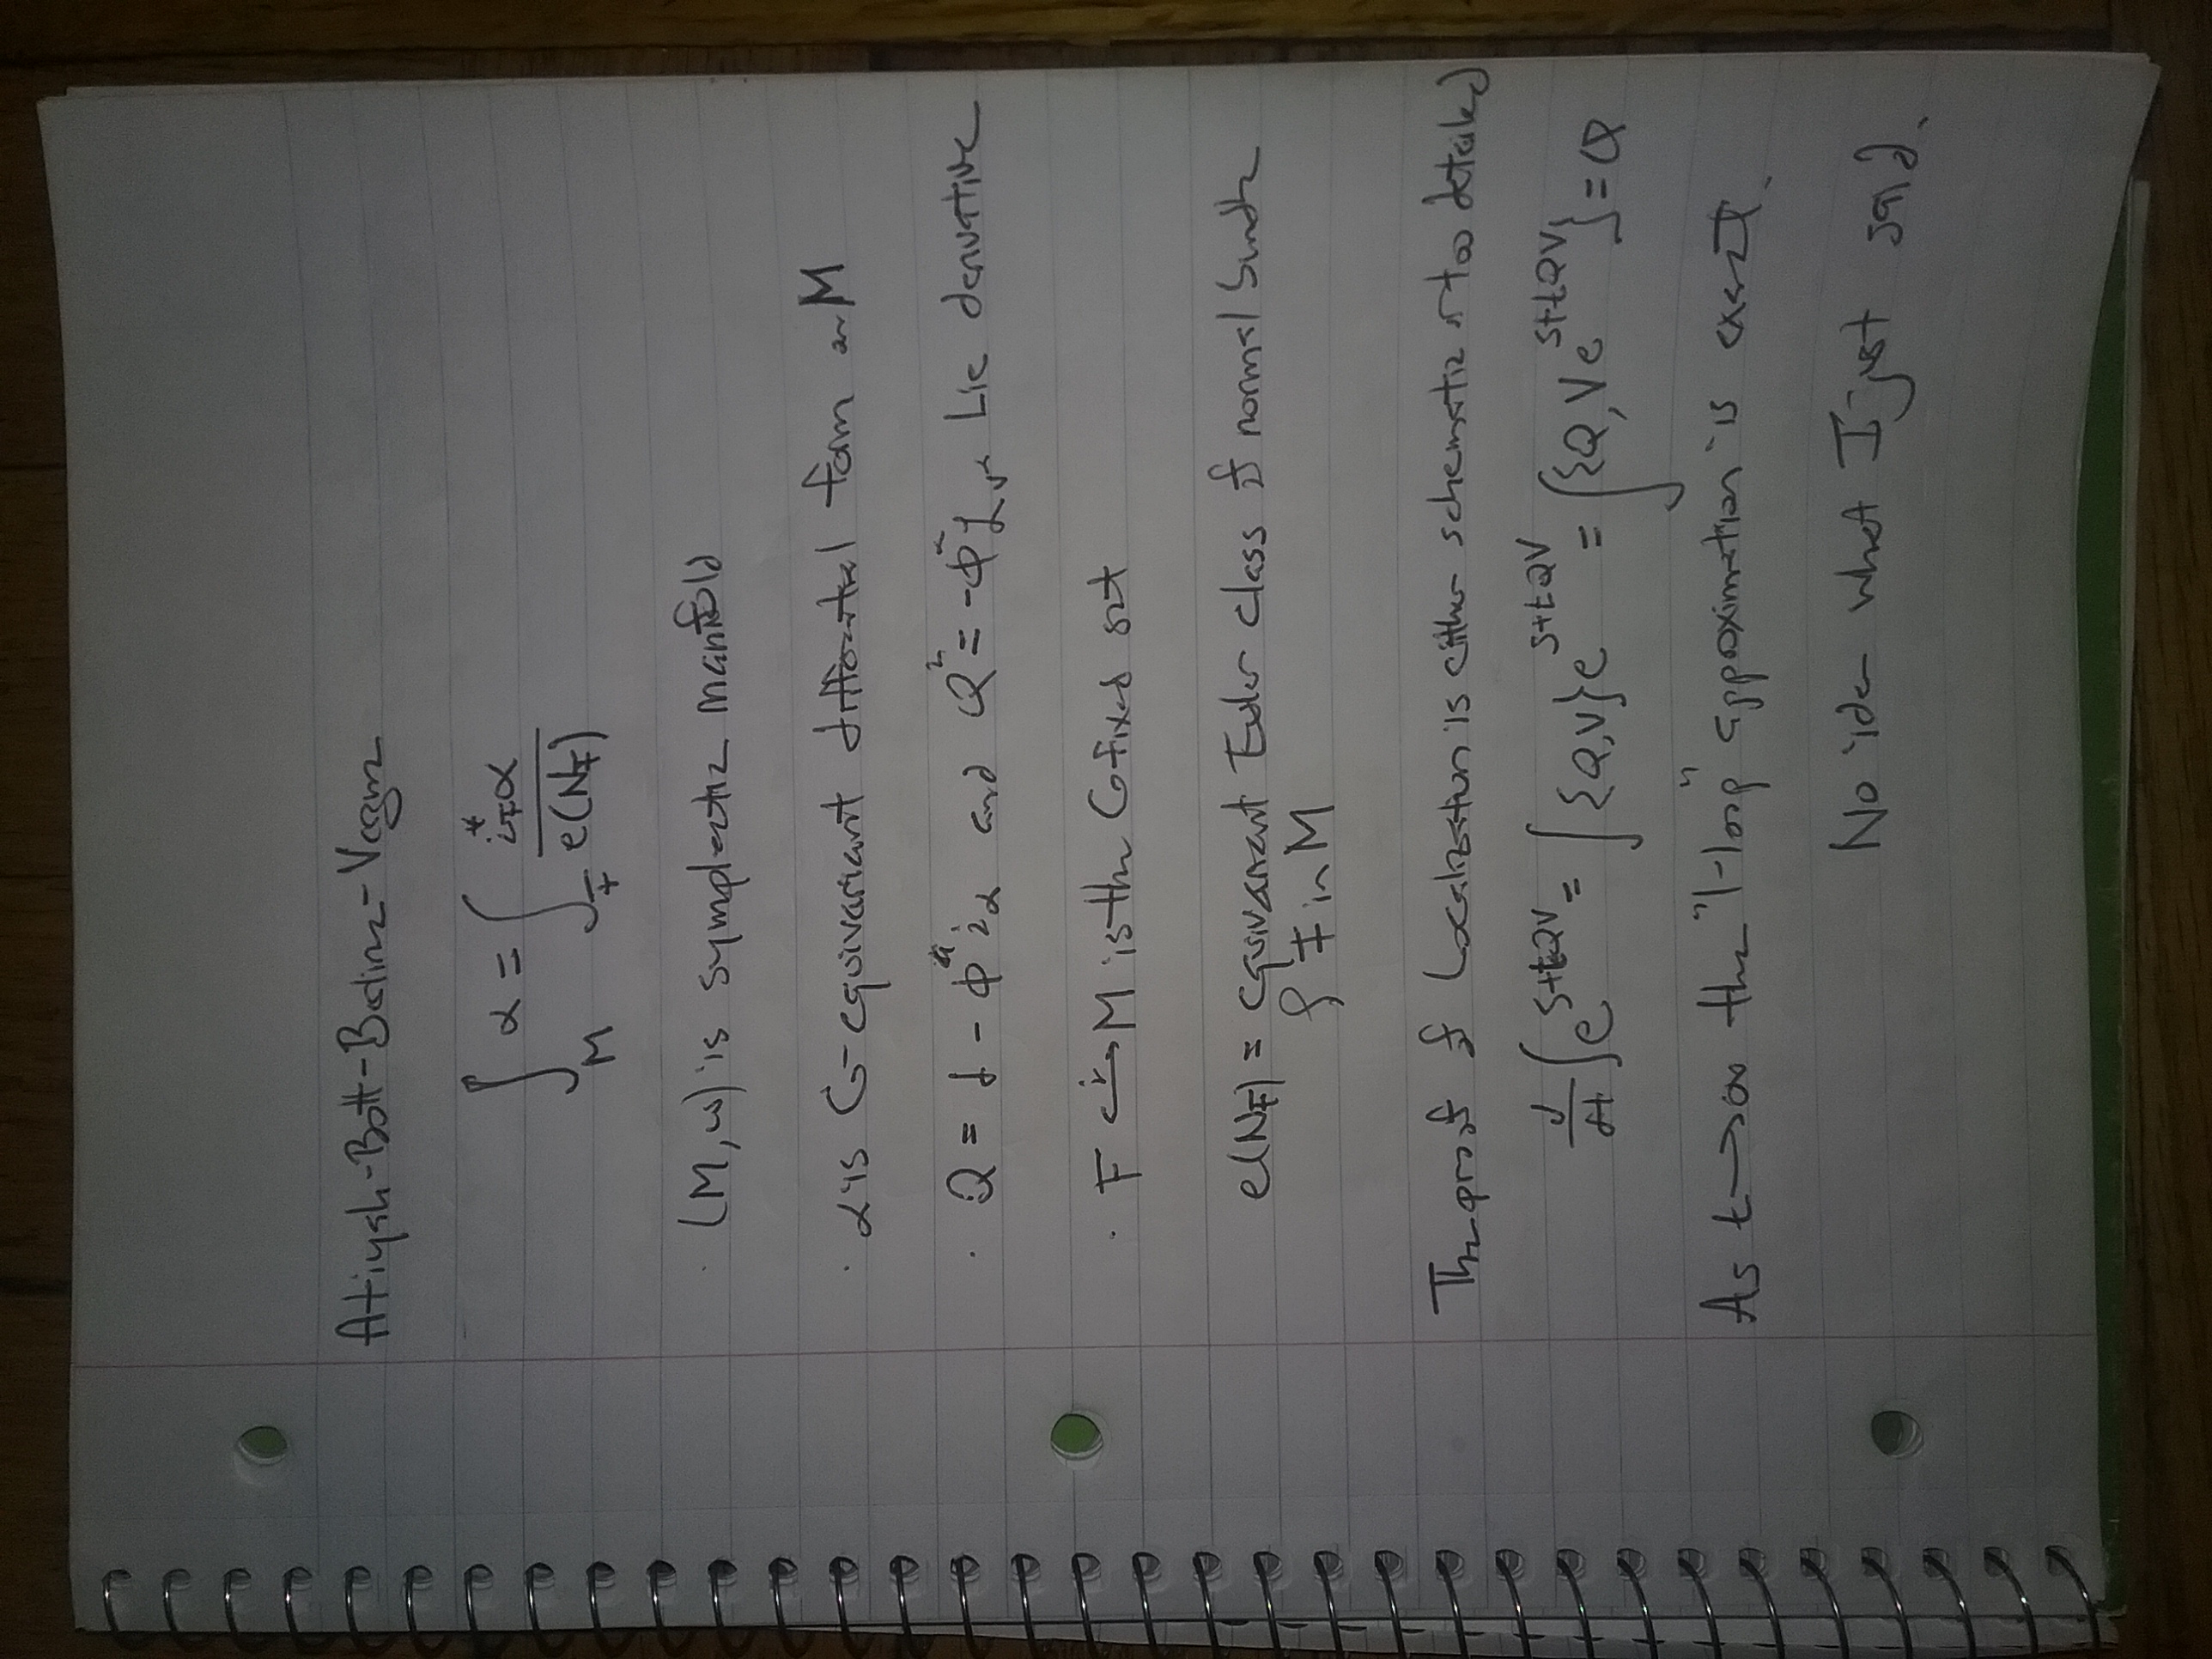 Atiyah-Bott-Berline-Vergne
∫_M α = ∫_F i_F^*α / e(N_F)
· (M, ω) is symplectic manifold
· α is G-equivariant differential form on M
· Q = d - φ^a i_a and Q^2 = -φ^a L_{v^a} Lie derivative
· F i↪ M is the G fixed set
e(N_F) = equivariant Euler class of normal bundle
of F in M
The proof of localization is either schematic or too detailed
d/dt ∫ e^{S+tQV} = ∫ {Q,V} e^{S+tQV} = ∫ {Q, V e^{S+tQV}} = 0
As t → ∞ the "1-loop" approximation is exact.
No idea what I just said.